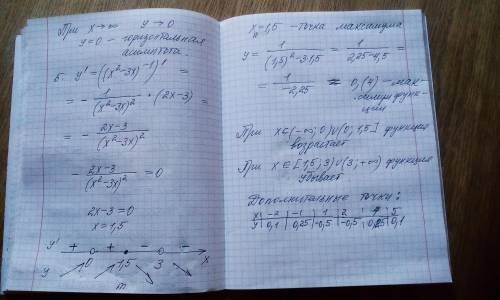 При x→∞ y→0
y=0 – горизонтальная
асимптота.
5. y' = ((x²-3x)⁻¹)' =
= - 1/(x²-3x)² · (2x-3) =
= - (2x-3)/(x²-3x)²
- (2x-3)/(x²-3x)² = 0
2x-3=0
x=1,5
y' + + - -
0 1,5 3 x
y
m
x=1,5 – точка максимума
y = 1/((1,5)²-3·1,5) = 1/(2,25-4,5) =
= 1/(-2,25) ≈ 0,(4) – мак-
симум функ-
ции
При x∈(-∞; 0)∪(0; 1,5] функция
возрастает
При x∈[1,5; 3)∪(3; +∞) функция
убывает
Дополнительные точки:
x -2 -1 1 2 4 5
y 0,1 0,25 -0,5 -0,5 0,25 0,1